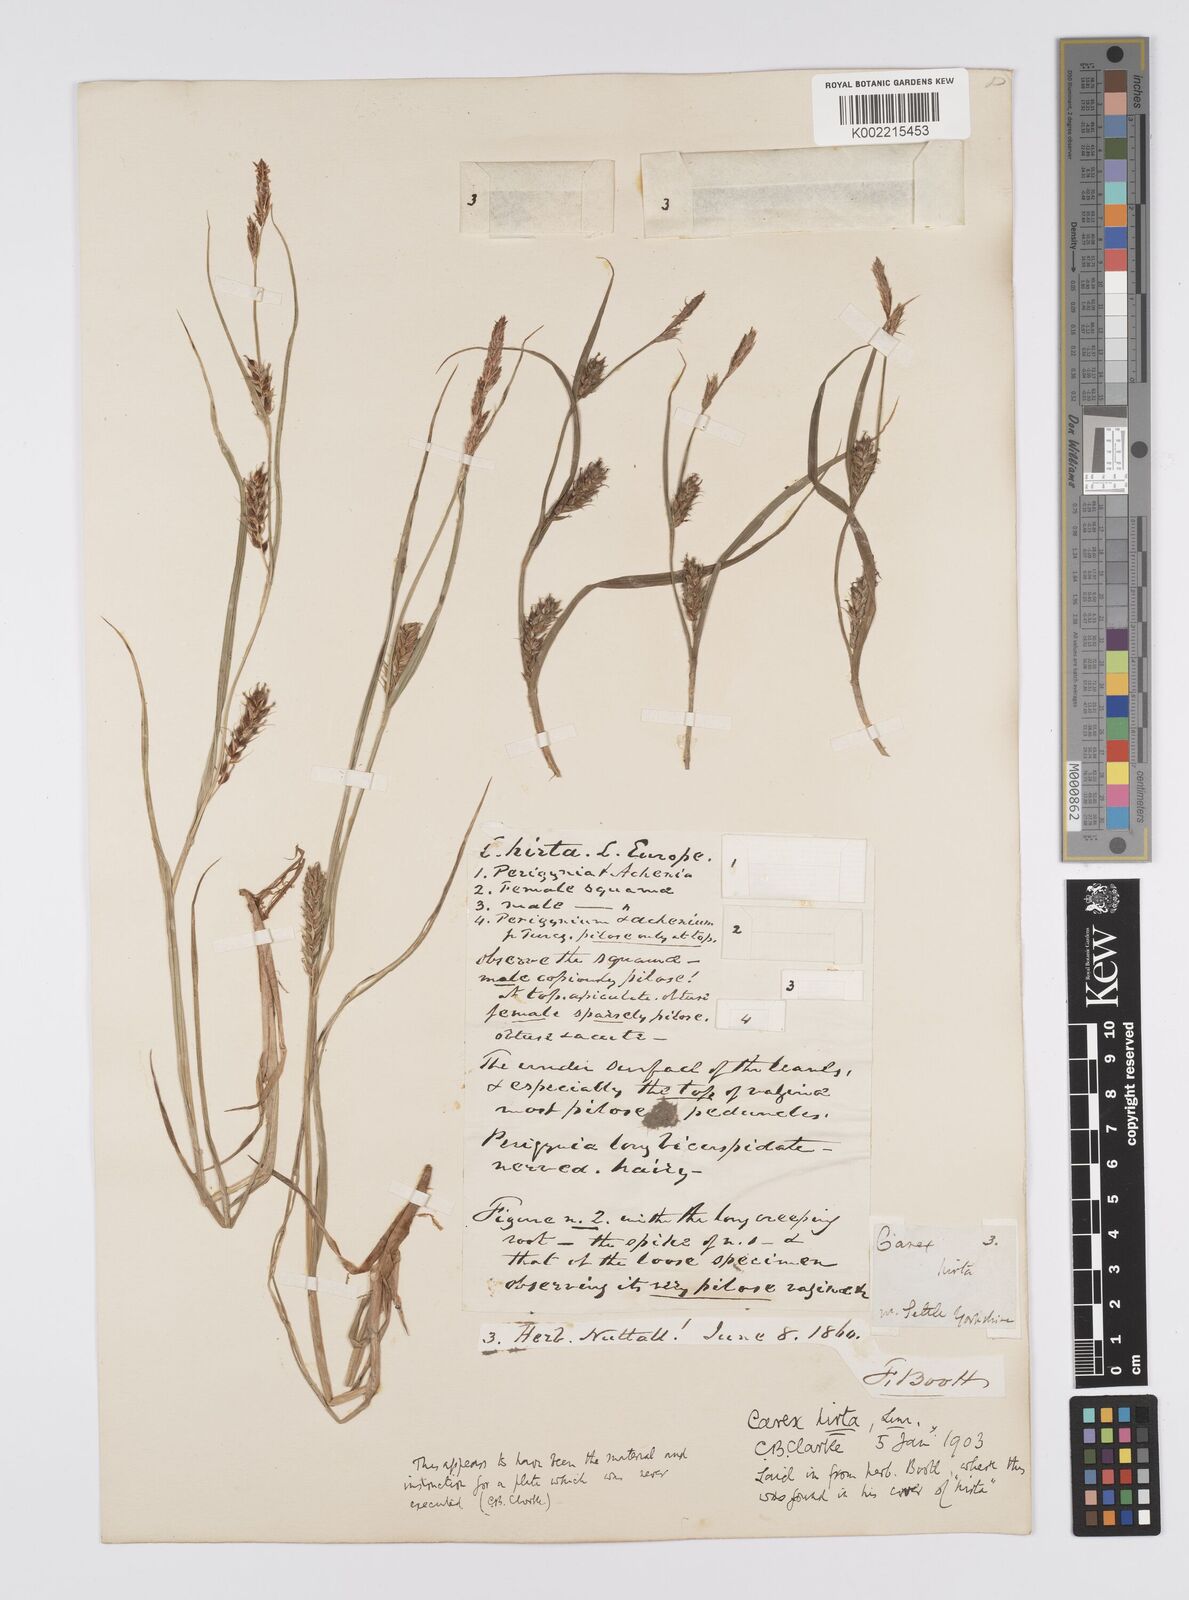 ROYAL BOTANIC GARDENS KEW
K002215453
3
3
C. hirta. L. Europe.
1. Perigynia & Achenia
2. Female squamæ
3. male — "
4. Perigynium & achenium
fr Turcz. pilose only at top.
observe the squamæ -
male copiously pilose!
at top. apiculate. obtuse
female sparsely pilose.
obtuse & acute -
The under surface of the leaves,
& especially the top of vaginæ
most pilose peduncles.
Perigynia long bicuspidate -
nerved. hairy -
Figure n. 2. with the long creeping
root - the spike of n. &
that of the loose specimen
observing its very pilose vaginæ &
3. Herb. Nuttall! June 8. 1860.
1
2
3
4
Carex 3.
hirta
nr. Settle Yorkshire
F. Boott
Carex hirta, Linn.
C.B. Clarke 5 Jany 1903
Laid in from herb. Boott, where this
was found in his cover of "hirta"
This appears to have been the material and
instruction for a plate which was never
executed (C.B. Clarke)
inches
centimetres
Density
Don Williams
M000862
Royal Botanic Gardens
Kew
copyright reserved
0 1 2 3 4 5 6 7 8 9 10
cm